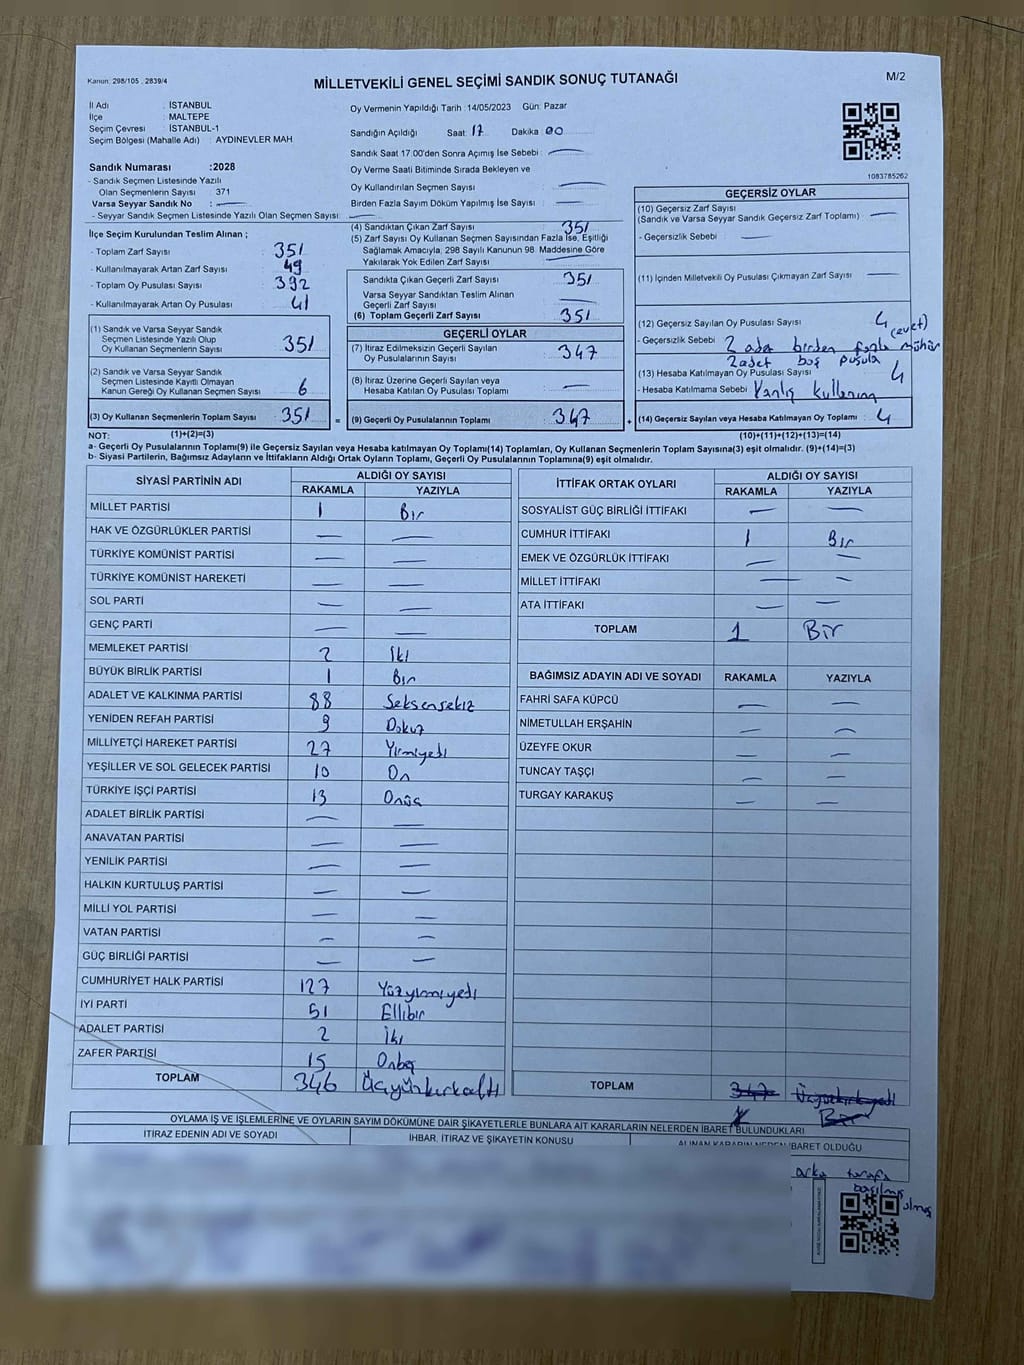 Kanun: 298/105 , 2839/4
MİLLETVEKİLİ GENEL SEÇİMİ SANDIK SONUÇ TUTANAĞI
M/2
İl Adı : İSTANBUL
İlçe : MALTEPE
Seçim Çevresi : İSTANBUL-1
Seçim Bölgesi (Mahalle Adı) : AYDINEVLER MAH
Sandık Numarası :2028
- Sandık Seçmen Listesinde Yazılı
Olan Seçmenlerin Sayısı : 371
Varsa Seyyar Sandık No : —
- Seyyar Sandık Seçmen Listesinde Yazılı Olan Seçmen Sayısı: —
Oy Vermenin Yapıldığı Tarih :14/05/2023 Gün: Pazar
Sandığın Açıldığı Saat: 17 Dakika: 00
Sandık Saat 17.00'den Sonra Açmış İse Sebebi : —
Oy Verme Saati Bitiminde Sırada Bekleyen ve
Oy Kullandırılan Seçmen Sayısı : —
Birden Fazla Sayım Döküm Yapılmış İse Sayısı : —
1083785262
İlçe Seçim Kurulundan Teslim Alınan ;
- Toplam Zarf Sayısı : 351
- Kullanılmayarak Artan Zarf Sayısı : 49
- Toplam Oy Pusulası Sayısı : 392
- Kullanılmayarak Artan Oy Pusulası : 41
(1) Sandık ve Varsa Seyyar Sandık
Seçmen Listesinde Yazılı Olup
Oy Kullanan Seçmenlerin Sayısı : 351
(2) Sandık ve Varsa Seyyar Sandık
Seçmen Listesinde Kayıtlı Olmayan
Kanun Gereği Oy Kullanan Seçmen Sayısı : 6
(3) Oy Kullanan Seçmenlerin Toplam Sayısı : 351
(1)+(2)=(3)
(4) Sandıktan Çıkan Zarf Sayısı : 351
(5) Zarf Sayısı Oy Kullanan Seçmen Sayısından Fazla İse, Eşitliği
Sağlamak Amacıyla, 298 Sayılı Kanunun 98. Maddesine Göre
Yakılarak Yok Edilen Zarf Sayısı : —
Sandıkta Çıkan Geçerli Zarf Sayısı : 351
Varsa Seyyar Sandıktan Teslim Alınan
Geçerli Zarf Sayısı : —
(6) Toplam Geçerli Zarf Sayısı : 351
GEÇERLİ OYLAR
(7) İtiraz Edilmeksizin Geçerli Sayılan
Oy Pusulalarının Sayısı : 347
(8) İtiraz Üzerine Geçerli Sayılan veya
Hesaba Katılan Oy Pusulası Toplamı : —
= (9) Geçerli Oy Pusulalarının Toplamı : 347
GEÇERSİZ OYLAR
(10) Geçersiz Zarf Sayısı
(Sandık ve Varsa Seyyar Sandık Geçersiz Zarf Toplamı) : —
- Geçersizlik Sebebi : —
(11) İçinden Milletvekili Oy Pusulası Çıkmayan Zarf Sayısı : —
(12) Geçersiz Sayılan Oy Pusulası Sayısı : 4
(evet)
- Geçersizlik Sebebi : 2 adet birden fazla mühür
2 adet boş pusula
(13) Hesaba Katılmayan Oy Pusulası Sayısı : 4
- Hesaba Katılmama Sebebi : Yanlış kullanım
+ (14) Geçersiz Sayılan veya Hesaba Katılmayan Oy Toplamı : 4
(10)+(11)+(12)+(13)=(14)
NOT:
a- Geçerli Oy Pusulalarının Toplamı(9) ile Geçersiz Sayılan veya Hesaba katılmayan Oy Toplamı(14) Toplamları, Oy Kullanan Seçmenlerin Toplam Sayısına(3) eşit olmalıdır. (9)+(14)=(3)
b- Siyasi Partilerin, Bağımsız Adayların ve İttifakların Aldığı Ortak Oyların Toplamı, Geçerli Oy Pusulalarının Toplamına(9) eşit olmalıdır.
SİYASİ PARTİNİN ADI ALDIĞI OY SAYISI
RAKAMLA YAZIYLA
MİLLET PARTİSİ 1 Bir
HAK VE ÖZGÜRLÜKLER PARTİSİ — —
TÜRKİYE KOMÜNİST PARTİSİ — —
TÜRKİYE KOMÜNİST HAREKETİ — —
SOL PARTİ — —
GENÇ PARTİ — —
MEMLEKET PARTİSİ 2 İki
BÜYÜK BİRLİK PARTİSİ 1 Bir
ADALET VE KALKINMA PARTİSİ 88 Seksensekiz
YENİDEN REFAH PARTİSİ 9 Dokuz
MİLLİYETÇİ HAREKET PARTİSİ 27 Yirmiyedi
YEŞİLLER VE SOL GELECEK PARTİSİ 10 On
TÜRKİYE İŞÇİ PARTİSİ 13 Onüç
ADALET BİRLİK PARTİSİ — —
ANAVATAN PARTİSİ — —
YENİLİK PARTİSİ — —
HALKIN KURTULUŞ PARTİSİ — —
MİLLİ YOL PARTİSİ — —
VATAN PARTİSİ — —
GÜÇ BİRLİĞİ PARTİSİ — —
CUMHURİYET HALK PARTİSİ 127 Yüzyirmiyedi
İYİ PARTİ 51 Ellibir
ADALET PARTİSİ 2 İki
ZAFER PARTİSİ 15 Onbeş
TOPLAM 346 Üçyüzkırkaltı
İTTİFAK ORTAK OYLARI ALDIĞI OY SAYISI
RAKAMLA YAZIYLA
SOSYALİST GÜÇ BİRLİĞİ İTTİFAKI — —
CUMHUR İTTİFAKI 1 Bir
EMEK VE ÖZGÜRLÜK İTTİFAKI — —
MİLLET İTTİFAKI — —
ATA İTTİFAKI — —
TOPLAM 1 Bir
BAĞIMSIZ ADAYIN ADI VE SOYADI RAKAMLA YAZIYLA
FAHRİ SAFA KÜPCÜ — —
NİMETULLAH ERŞAHİN — —
ÜZEYFE OKUR — —
TUNCAY TAŞÇI — —
TURGAY KARAKUŞ — —
TOPLAM 347 Üçyüzkırkyedi
Bir
OYLAMA İŞ VE İŞLEMLERİNE VE OYLARIN SAYIM DÖKÜMÜNE DAİR ŞİKAYETLERLE BUNLARA AİT KARARLARIN NELERDEN İBARET BULUNDUKLARI
İTİRAZ EDENİN ADI VE SOYADI İHBAR, İTİRAZ VE ŞİKAYETİN KONUSU ALINAN KARARIN NEDEN İBARET OLDUĞU
arka tarafa